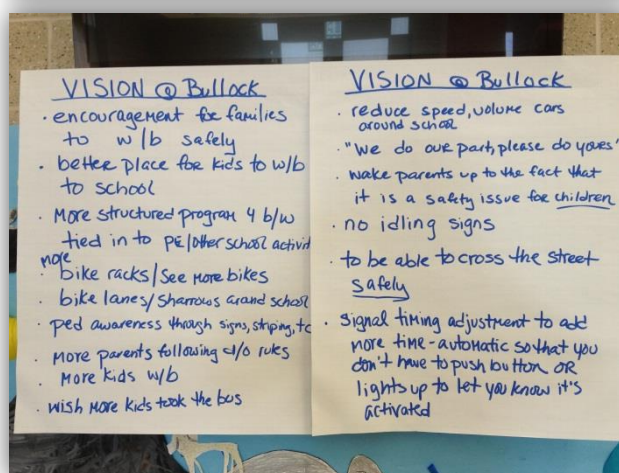 VISION @ Bullock
• encouragement for families
to w/b safely
• better place for kids to w/b
to school
• More structured program 4 b/w
tied in to PE/other school activit
• more bike racks/See more bikes
• bike lanes/sharrows around school
• ped awareness through signs, striping, tc
• More parents following d/o rules
• More kids w/b
• wish more kids took the bus
VISION @ Bullock
• reduce speed, volume cars
around school
• "We do our part, please do yours"
• wake parents up to the fact that
it is a safety issue for children
• no idling signs
• to be able to cross the street
safely
• Signal timing adjustment to add
more time-automatic so that you
don't have to push button OR
lights up to let you know it's
activated